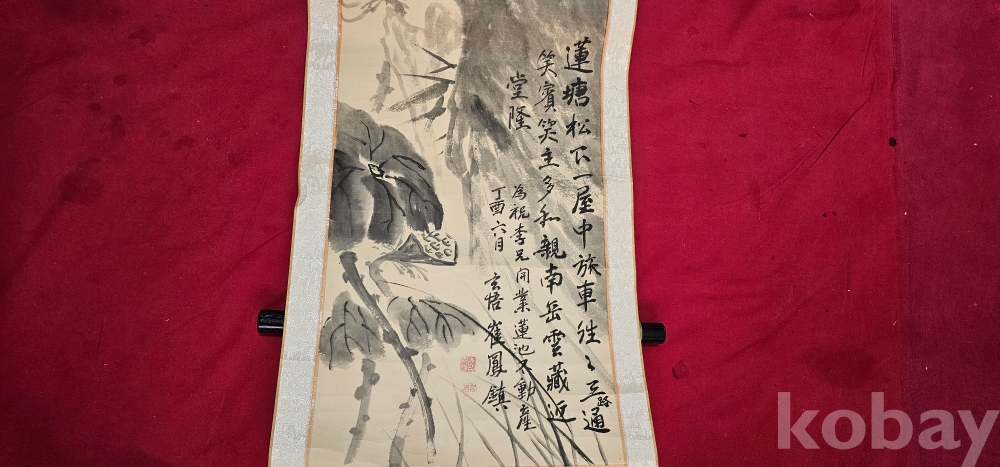 蓮塘松下一屋中旅車往々五路通
笑賓笑主多和親南岳雲藏近
堂隆
為祝李兄開業蓮池不動産
丁酉六月 玄悟 崔鳳鎮
kobay